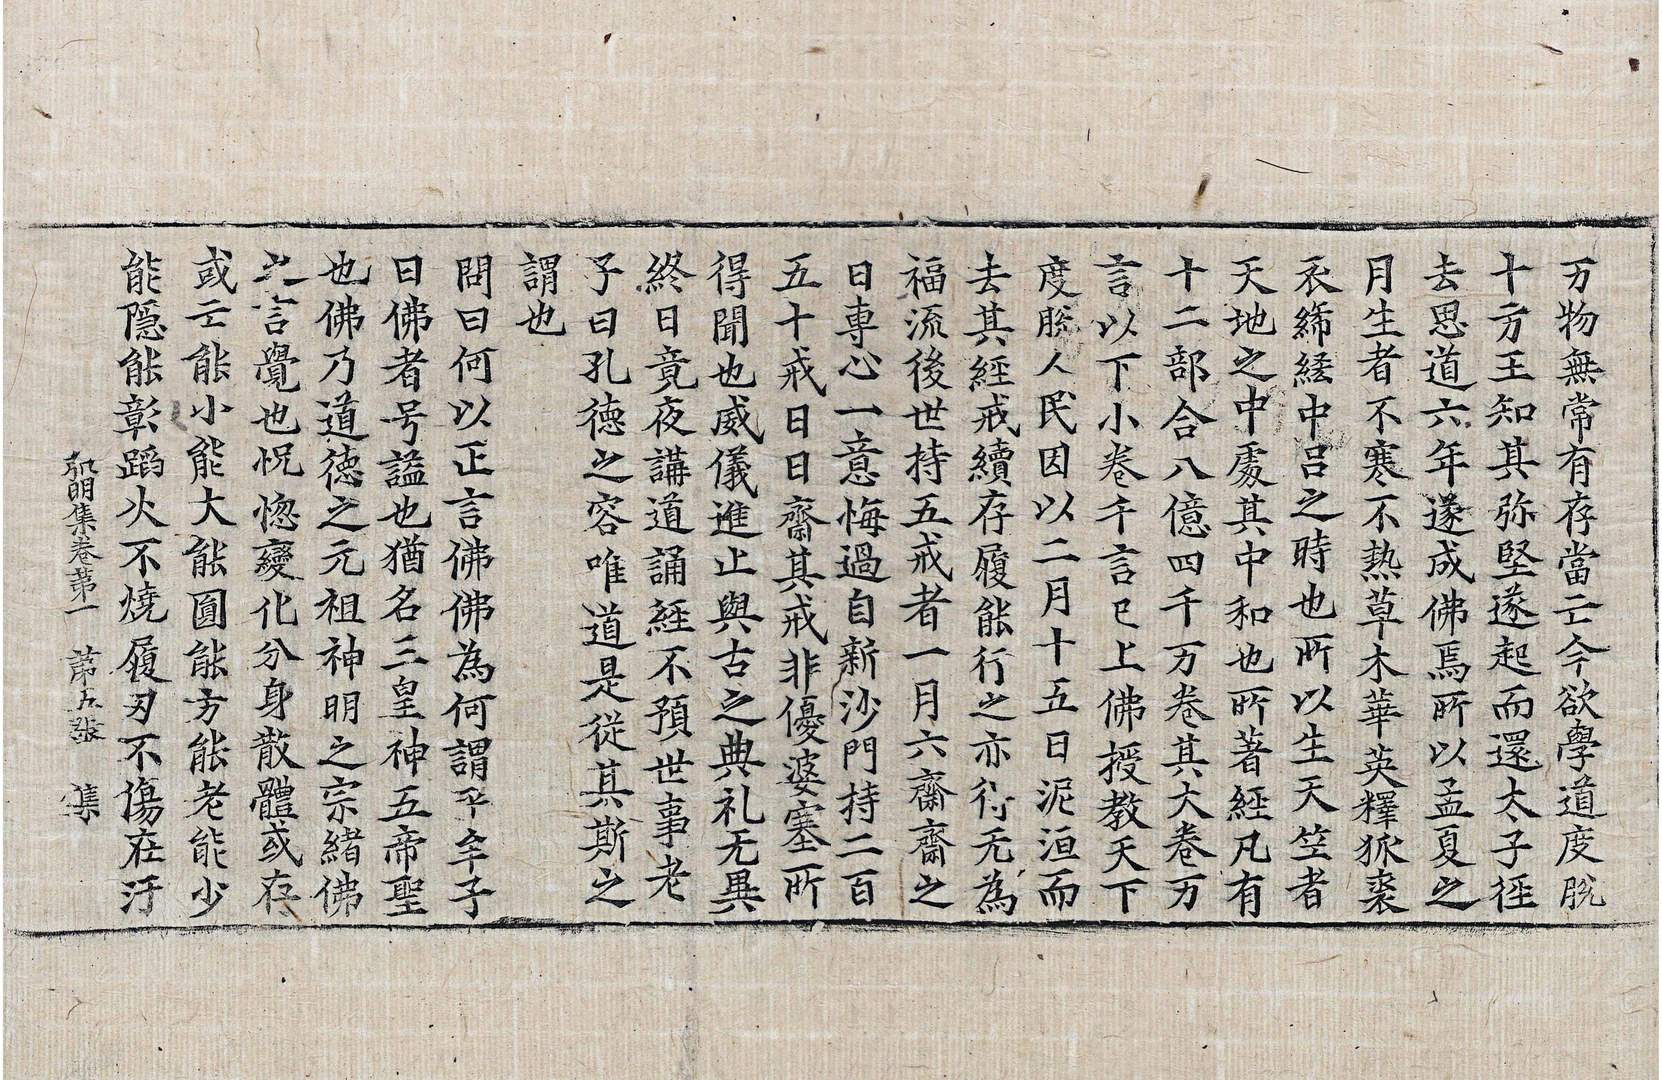 万物無常有存當亡今欲學道度脫
十方王知其弥堅遂起而還太子徑
去思道六年遂成佛焉所以孟夏之
月生者不寒不熱草木華英釋狐裘
衣絺綌中呂之時也所以生天竺者
天地之中處其中和也所著經凡有
十二部合八億四千万卷其大卷万
言以下小卷千言已上佛授教天下
度脫人民因以二月十五日泥洹而
去其經戒續存履能行之亦得无為
福流後世持五戒者一月六齋齋之
日專心一意悔過自新沙門持二百
五十戒日日齋其戒非優婆塞所
得聞也威儀進止與古之典礼无異
終日竟夜講道誦經不預世事老
子曰孔德之容唯道是從其斯之
謂也
問曰何以正言佛佛為何謂乎牟子
曰佛者号謚也猶名三皇神五帝聖
也佛乃道德之元祖神明之宗緒佛
之言覺也怳惚變化分身散體或存
或亡能小能大能圓能方能老能少
能隱能彰蹈火不燒履刃不傷在汙
弘明集卷第一 第五張 集